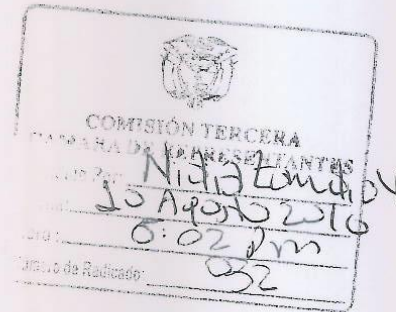 COMISIÓN TERCERA
CAMARA DE REPRESENTANTES
Por: Nidia
10 Agosto 2016
Hora: 6:02 Pm
Número de Radicado: 032